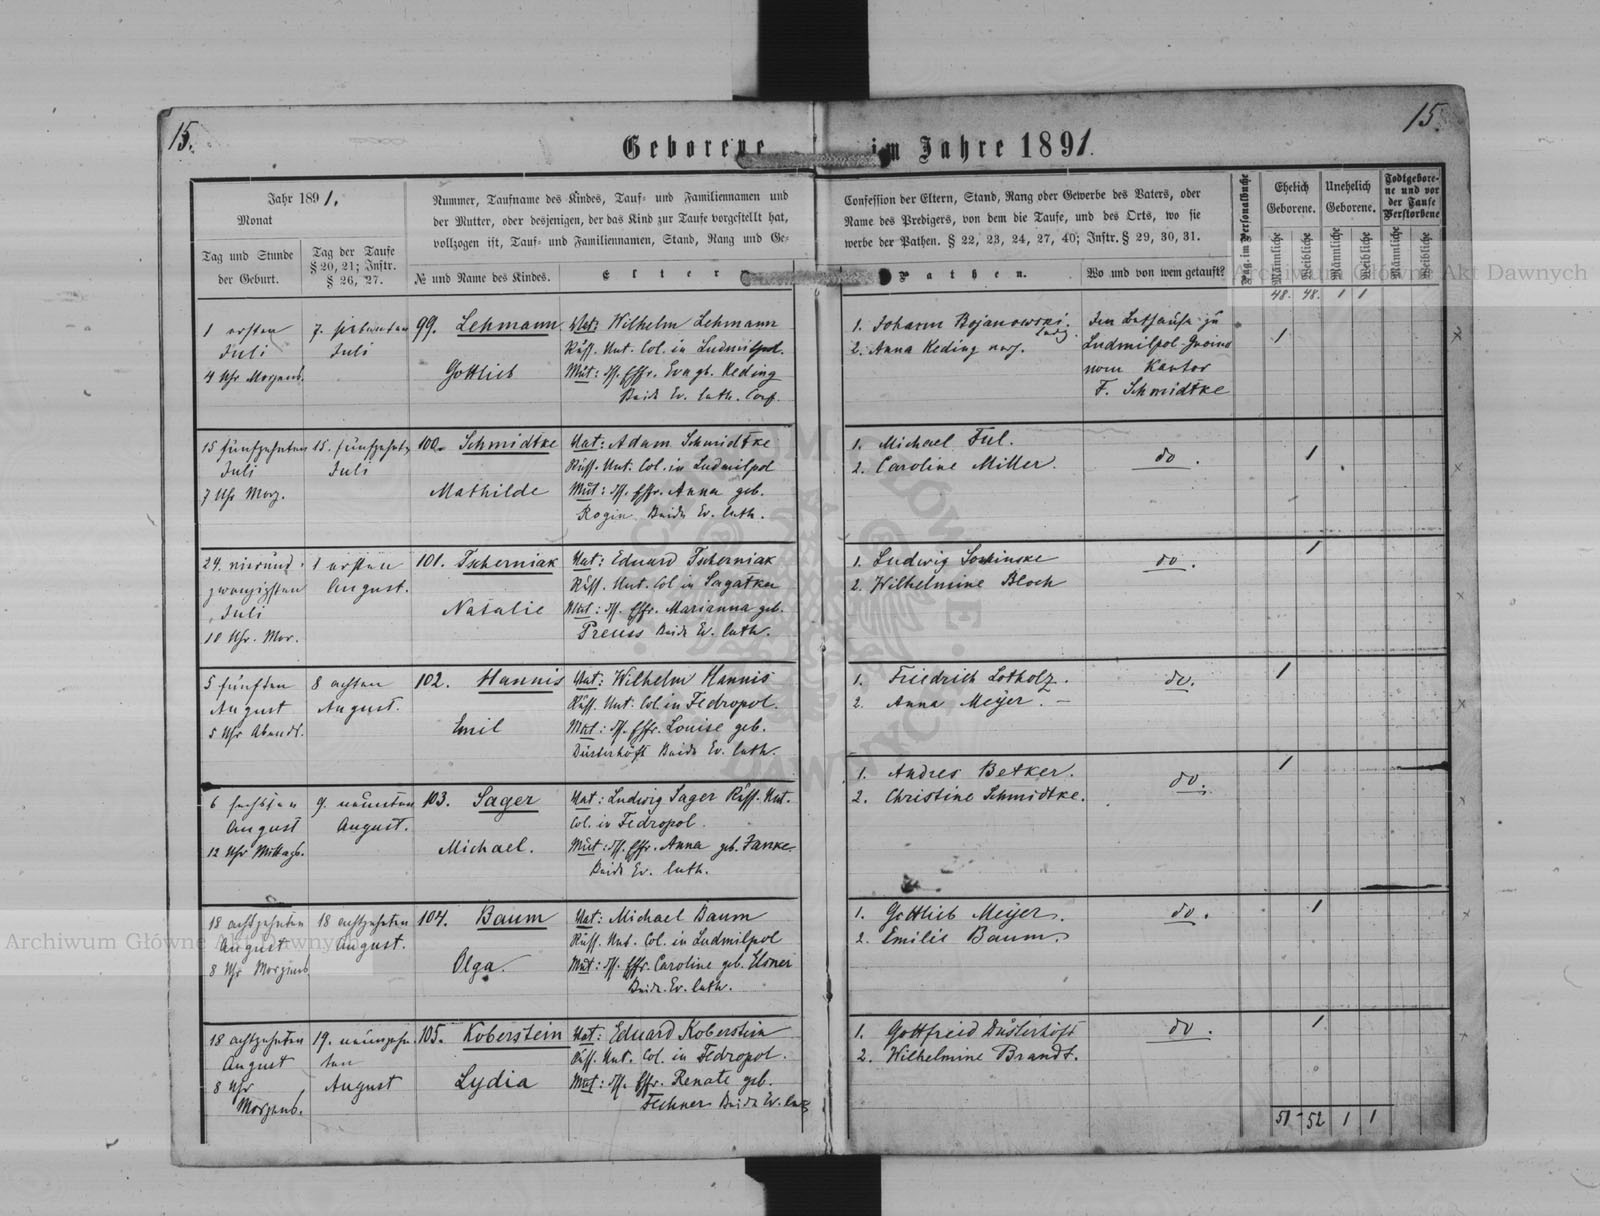 15.
15.
Geborene im Jahre 1891.
Jahr 1891.
Monat
Tag und Stunde
der Geburt.
Tag der Taufe
§ 20, 21; Instr.
§ 26, 27.
Nummer, Taufname des Kindes, Tauf- und Familiennamen und
der Mutter, oder desjenigen, der das Kind zur Taufe vorgestellt hat,
vollzogen ist, Tauf- und Familiennamen, Stand, Rang und Ge-
№ und Name des Kindes.
Elter
Confession der Eltern, Stand, Rang oder Gewerbe des Vaters, oder
Name des Predigers, von dem die Taufe, und des Orts, wo sie
werbe der Pathen. § 22, 23, 24, 27, 40; Instr. § 29, 30, 31.
Pathen.
Wo und von wem getauft?
Pag. im Personalbuche
Ehelich
Geborene.
Unehelich
Geborene.
Todtgebore-
ne und vor
der Taufe
Verstorbene
Männliche
Weibliche
Männliche
Weibliche
Männliche
Weibliche
48. 48. 1 1
1 ersten
Juli
4 Uhr Morgens.
7. siebenten
Juli
99. Lehmann
Gottlieb
Vat: Wilhelm Lehmann
Russ. Unt. Col. in Ludmilpol.
Mut: Evgb. Keding
Beide Ev. luth. Conf.
1. Johann Bojanowski.
ledig.
2. Anna Keding
Im Bethause zu
Ludmilpol
vom Kantor
F. Schmidtke
1
15 fünfzehnten
Juli
7 Uhr Morg.
15. fünfzehnten
Juli
100. Schmidtke
Mathilde
Vat: Adam Schmidtke
Russ. Unt. Col. in Ludmilpol
Mut: Anna geb.
Rogin Beide Ev. luth.
1. Michael Ful.
2. Caroline Miller.
do.
1
24. vierund-
zwanzigsten
Juli
10 Uhr. Mor.
1 ersten
August.
101. Tscherniak
Natalie
Vat: Eduard Tscherniak
Russ. Unt. Col in Sagatka
Mut: Marianna geb.
Preuss Beide Ev. luth.
1. Ludwig
2. Wilhelmine Bloch
do.
1
5 fünften
August
5 Uhr Abends.
8 achten
August.
102. Hannis
Emil
Vat: Wilhelm Hannis
Russ. Unt. Col. in Fedropol.
Mut: Louise geb.
Düsterhöft Beide Ev. luth.
1. Friedrich Lotholz.
2. Anna Meyer.
do.
1
6 sechsten
August
12 Uhr Mittags.
9. neunten
August.
103. Sager
Michael.
Vat: Ludwig Sager Russ. Unt.
Col. in Fedropol.
Mut: Anna geb. Janke.
Beide Ev. luth.
1. Andres Betker.
2. Christine Schmidtke.
do.
1
18 achtzehnten
August
8 Uhr Morgens
18 achtzehnten
August.
104. Baum
Olga.
Vat: Michael Baum
Russ. Unt. Col. in Ludmilpol
Mut: Caroline geb. Elsner
Beide. Ev. luth.
1. Gottlieb Meyer.
2. Emilie Baum.
do.
1
18 achtzehnten
August
8 Uhr
Morgens.
19. neunzehn-
ten
August
105. Koberstein
Lydia
Vat: Eduard Koberstein
Russ. Unt. Col. in Fedropol.
Mut: Renate geb.
Fechner Beide Ev. luth
1. Gottfried Düsterhöft
2. Wilhelmine Brandt.
do.
1
51 - 52 1 1
Archiwum Główne Akt Dawnych
Archiwum Główne Akt Dawnych